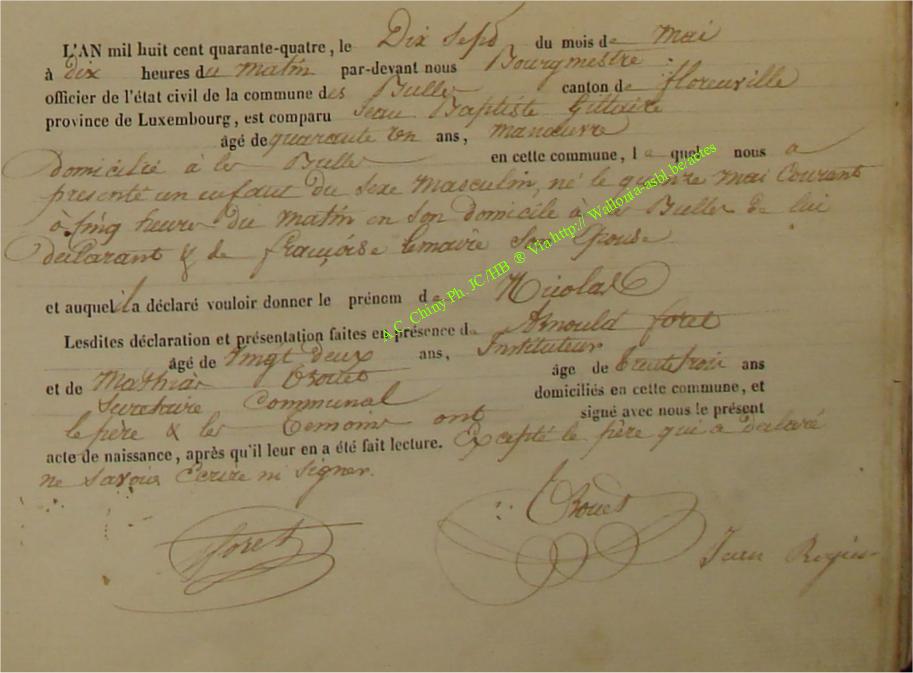 L'AN mil huit cent quarante-quatre, le Dix Sept du mois de mai
à dix heures du matin par-devant nous Bourgmestre
officier de l'état civil de la commune des Bulles canton de florenville
province de Luxembourg, est comparu Jean Baptiste Gillaire
âgé de quarante un ans, manœuvre
domicilié à les Bulles en cette commune, le quel nous a
présenté un enfant du Sexe Masculin, né le quinze mai Courant
à Cinq heures du Matin en Son domicile à les Bulles de lui
déclarant & de françoise lemaire Son Epouse
et auquel il a déclaré vouloir donner le prénom de Nicolas
Lesdites déclaration et présentation faites en présence de Arnould foret
âgé de Vingt deux ans, Instituteur
et de Mathias Crouet âge de trente trois ans
Secretaire Communal domiciliés en cette commune, et
le père & les Temoins ont signé avec nous le présent
acte de naissance, après qu'il leur en a été fait lecture. Excepté le père qui a déclaré
ne Savoir Ecrire ni Signer.
A.C. Chiny Ph. JC/HB ® Via http://Wallonia-asbl.be/actes
foret
Crouet
Jean